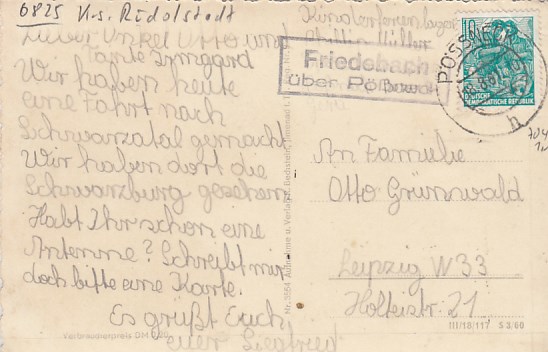 6825 Krs. Rudolstadt
Lieber Onkel Otto und
Tante Irmgard
Wir haben heute
eine Fahrt nach
Schwarzatal gemacht
Wir haben dort die
Schwarzburg gesehen
Habt Ihr schon eine
Antenne? Schreibt mir
doch bitte eine Karte.
Es grüßt Euch,
euer Siegfried
Verbraucherpreis DM 0,20
Friedebach
über Pößneck
PÖSSNECK
h
10
DEUTSCHE
DEMOKRATISCHE REPUBLIK
An Familie
Otto Grünwald
Leipzig W 33
Holteistr. 21
III/18/117 S 3/60